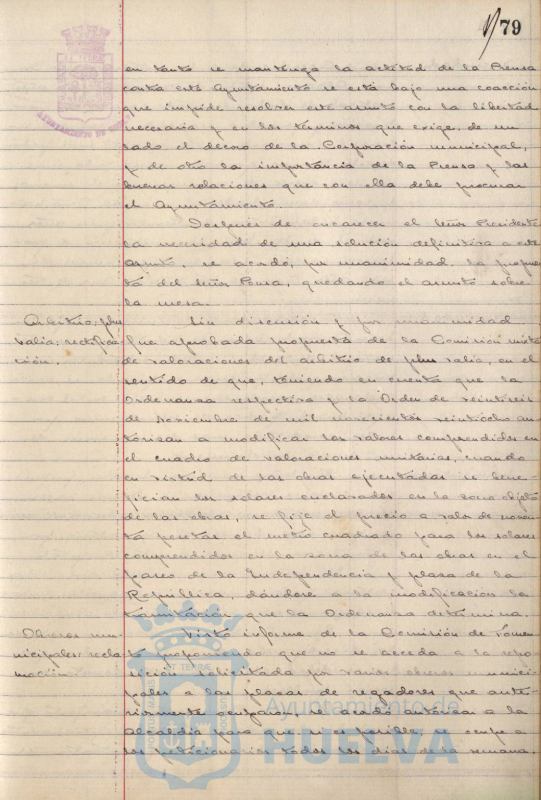 79
en tanto se mantenga la actitud de la Prensa
contra este Ayuntamiento se está bajo una coacción
que impide resolver este asunto con la libertad
necesaria y en los términos que exige, de un
lado el decoro de la Corporación municipal,
y de otro la importancia de la Prensa y las
buenas relaciones que con ella debe procurar
el Ayuntamiento.
Después de encarecer el Señor Presidente
la necesidad de una solución definitiva a este
asunto, se acordó, por unanimidad, la propues-
ta del Señor Ponsa, quedando el asunto sobre
la mesa.
Arbitrio, plus
valia; rectifica-
ción.
Sin discusión y por unanimidad
fue aprobada propuesta de la Comisión mixta
de valoraciones del arbitrio de plus valia, en el
sentido de que, teniendo en cuenta que la
Ordenanza respectiva y la Orden de veintiseis
de Noviembre de mil novecientos veintiocho au-
torisan a modificar los valores comprendidos en
el cuadro de valoraciones unitarias, cuando
en virtud de las obras ejecutadas se bene-
ficien los solares enclavados en la zona objeto
de las obras, se fije el precio a valor de noven-
ta pesetas el metro cuadrado para los solares
comprendidos en la zona de las obras en el
paseo de la Independencia y plaza de la
República, dándose a la modificación la
tramitación que la Ordenanza determina.
Obreros mu-
nicipales: recla-
mación
Visto informe de la Comisión de Fomen-
to proponiendo que no se acceda a la repo-
sición solicitada por varios obreros munici-
pales a las plazas de regadores que ante-
riormente ocuparon, se acordó autorizar a la
Alcaldía para que si es posible, se ocupe a
los peticionarios todos los días de la semana.
Ayuntamiento de
HUELVA